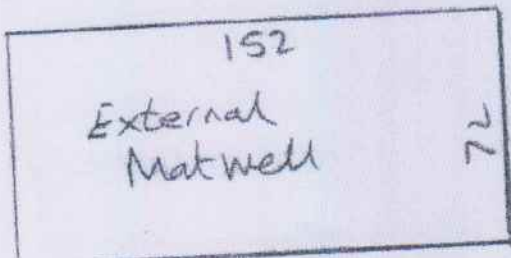 152
External
Matwell
72